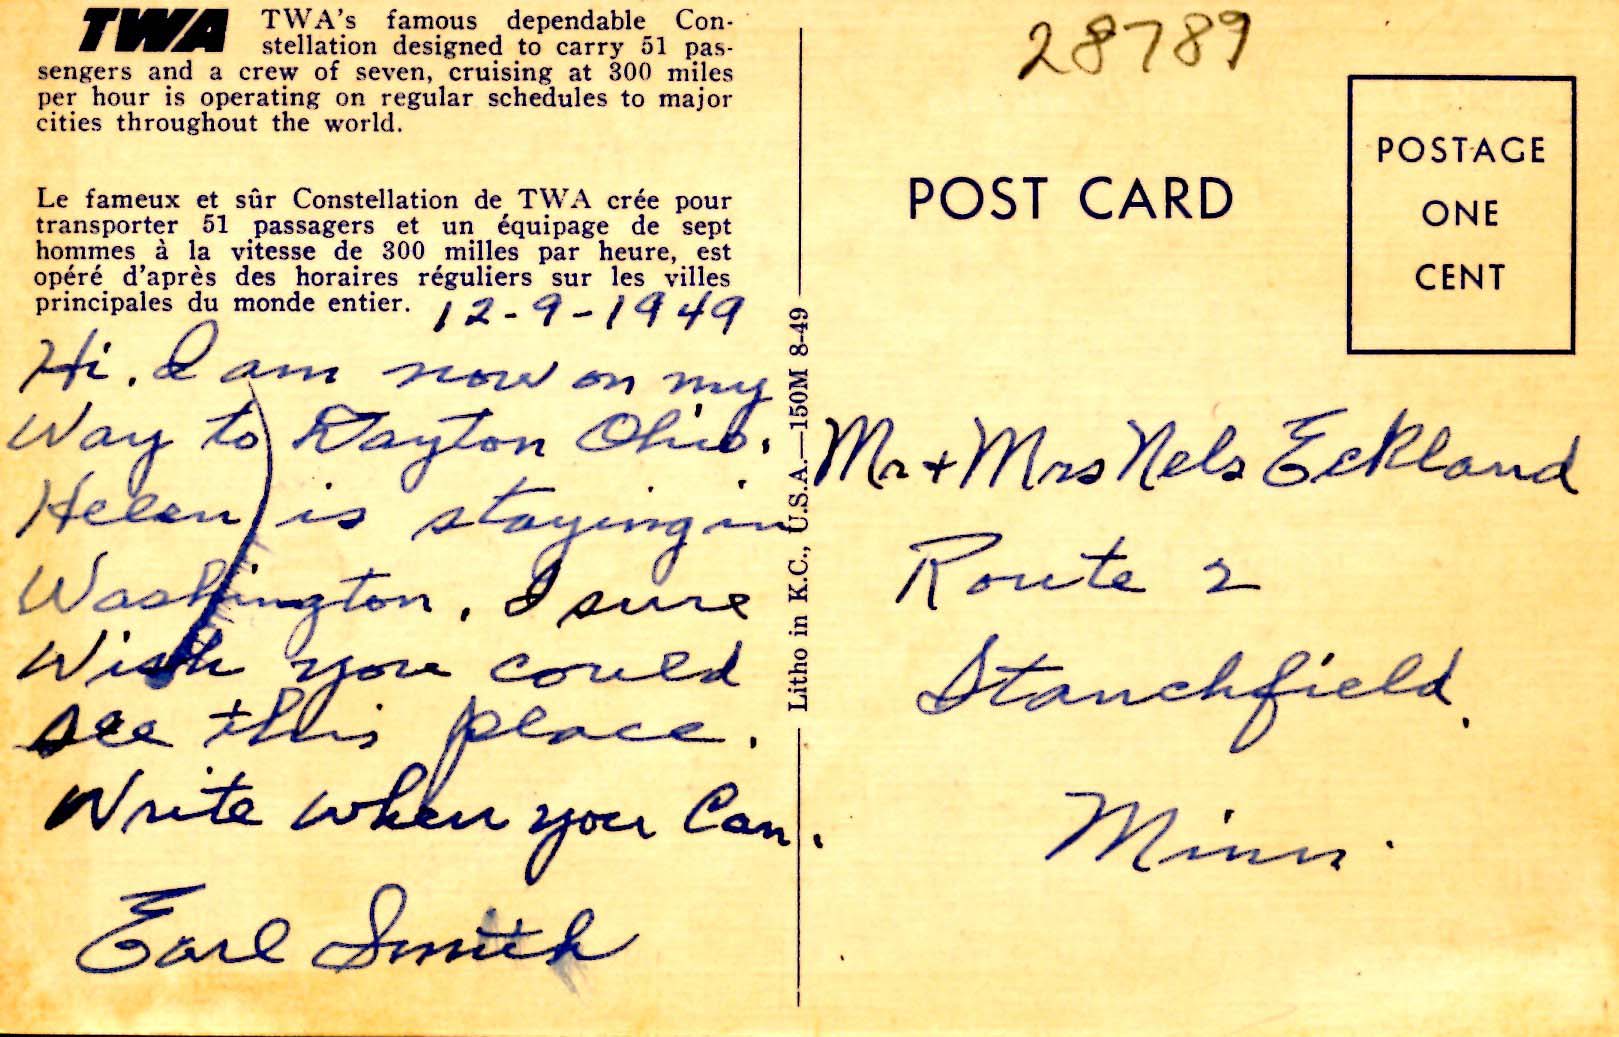 TWA TWA's famous dependable Con-
stellation designed to carry 51 pas-
sengers and a crew of seven, cruising at 300 miles
per hour is operating on regular schedules to major
cities throughout the world.
Le fameux et sûr Constellation de TWA crée pour
transporter 51 passagers et un équipage de sept
hommes à la vitesse de 300 milles par heure, est
opéré d'après des horaires réguliers sur les villes
principales du monde entier.
12-9-1949
Hi. I am now on my
Way to Dayton Ohio.
Helen is staying in
Washington. I sure
Wish you could
see this place.
Write when you Can.
Earl Smith
Litho in K.C., U.S.A.—150M 8-49
28789
POST CARD
POSTAGE
ONE
CENT
Mr + Mrs Nels Eckland
Route 2
Stanchfield.
Minn.